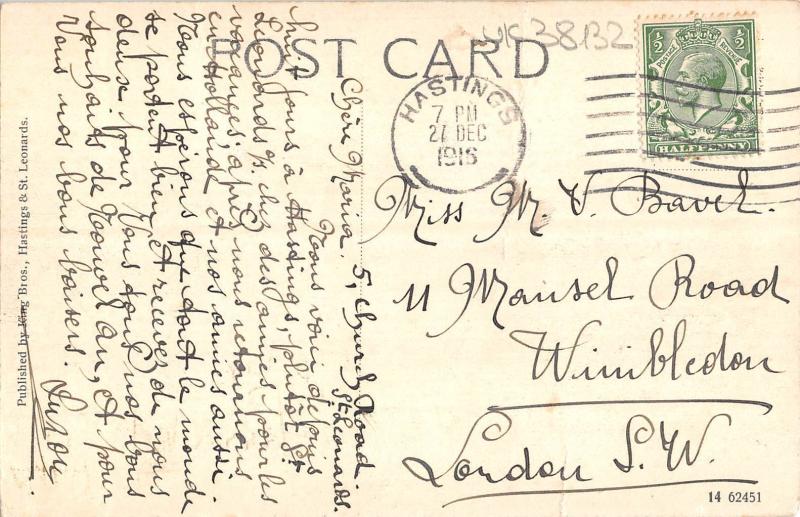 POST CARD
UK 38132
HASTINGS
7 PM
27 DEC
1916
1/2 1/2
POSTAGE REVENUE
HALFPENNY
Miss M. V. Bavel.
11 Mansel Road
Wimbledon
London S.W.
5, Church Road
St Leonards.
Chère Maria.
Nous voici depuis
huit jours à Hastings, plutôt St
Leonards/s chez des amies pour les
vacances; après nous retournons
en Hollande et nos amies aussi.
Nous esperons que tout le monde
se portent bien, et recevez de nous
deux pour vous tout nos bons
souhaits de Nouvel an, et pour
Vous nos bons baisers.
Published by King Bros., Hastings & St. Leonards.
14 62451